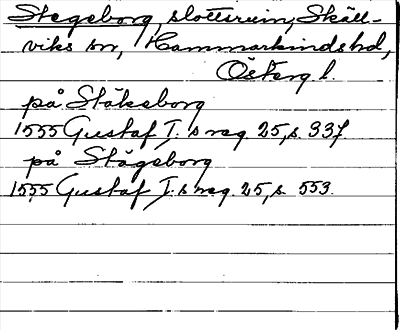 Stegeborg, slottsruin, Skäll-
viks sn, Hammarkinds hd,
Österg. l.
på Stäkeborg
1555 Gustaf I:s reg. 25, s. 337
på Stägeborg
1555 Gustaf I:s reg. 25, s. 553.